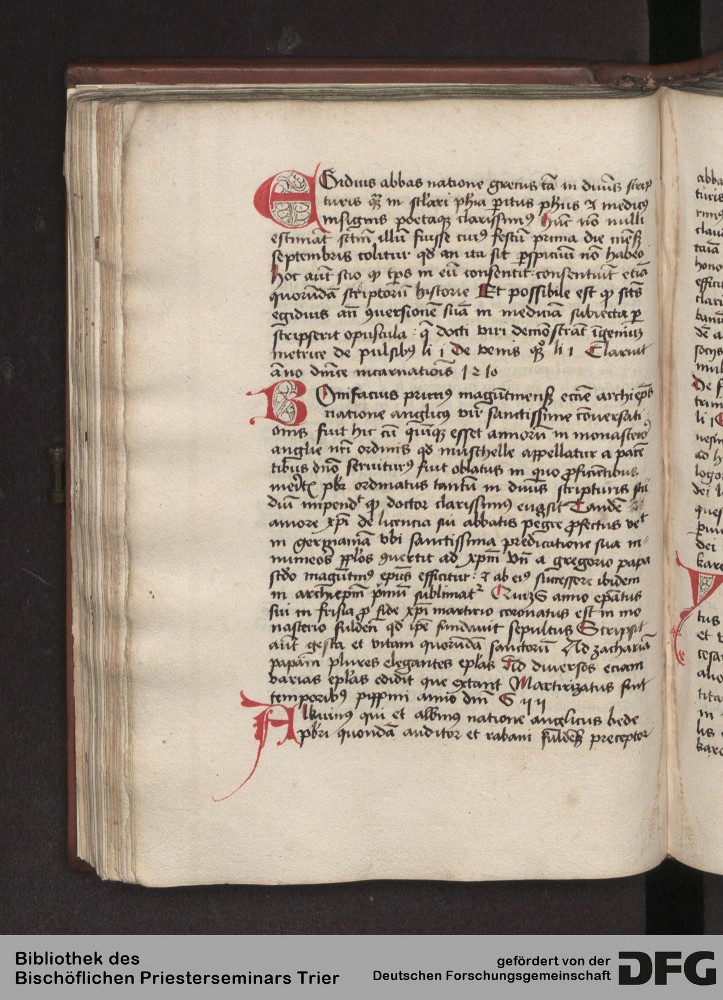 EGidius abbas natione grecus tā in diuīs scrip
turis qȝ in sclari phīa pitus phūs ⁊ medicꝰ
insignis poetaqȝ clarissimꝰ Hūc nō nulli
estimāt sctm̄ illū fuisse cuiꝰ festū prima die mēsꝭ
septembris colitur qd an ita sit pspicuū nō habeo
Hoc aūt scio qp tp̄s in eū consentit consentiūt etiā
quorūdā scriptorū historie Et possibile est qp sctꝰ
egidius an̄ ꝯuersionē suā in medicīa subiecta p
scripserit opuscula : q̄ docti viri demōstrāt īgeniuꝫ
metrice de pulsibꝰ li i De venis qȝ li i Claruit
āno dn̄ice incarnatiōis 1210
BOnifacius primꝰ magūtinensꝭ ecc̄ie archiepꝰ
natione anglicꝰ vir sanctissime cōuersati
onis fuit hic cū quīqȝ esset annorū in monasterio
anglie nr̄i ordinis qd nuschelle appellatur a parē
tibus dn̄o seruiturꝰ fuit oblatus in quo ꝓficiētibus
mer̄tꝭ pbr ordinatus tantū in diuīs scripturis stu
diū impendꝭ qp doctor clarissimus euasit Tandē
amore xp̄i de licencia sui abbatis pegre ꝓfectus veꝭ
in germaniā vbi sanctissima predicatione sua in
numeros pp̄los ꝯuertit ad xp̄m vn̄ a gregorio papa
scdo magūtinꝰ ep̄us efficitur : ⁊ ab eiꝰ successore ibidem
in archiep̄m primū sublimatꝰ Qui 36 anno ep̄atus
sui in frisia ꝓ fide xp̄i martirio coronatus est in mo
nasterio fuldeñ qd ip̄e fundauit sepultus Scripsit
aūt gesta et vitam quorūdā sanctorū Ad zachariā
papam plures elegantes ep̄las Ad diuersos eciam
varias ep̄las edidit que extant Martirizatus fuit
temporibꝰ pippini anno dn̄i
ALkuinus qui et albinus natione anglicus bede
pbr̄i quondā auditor et rabani fuldeñ preceptor
Bibliothek des
Bischöflichen Priesterseminars Trier
gefördert von der
Deutschen Forschungsgemeinschaft
DFG